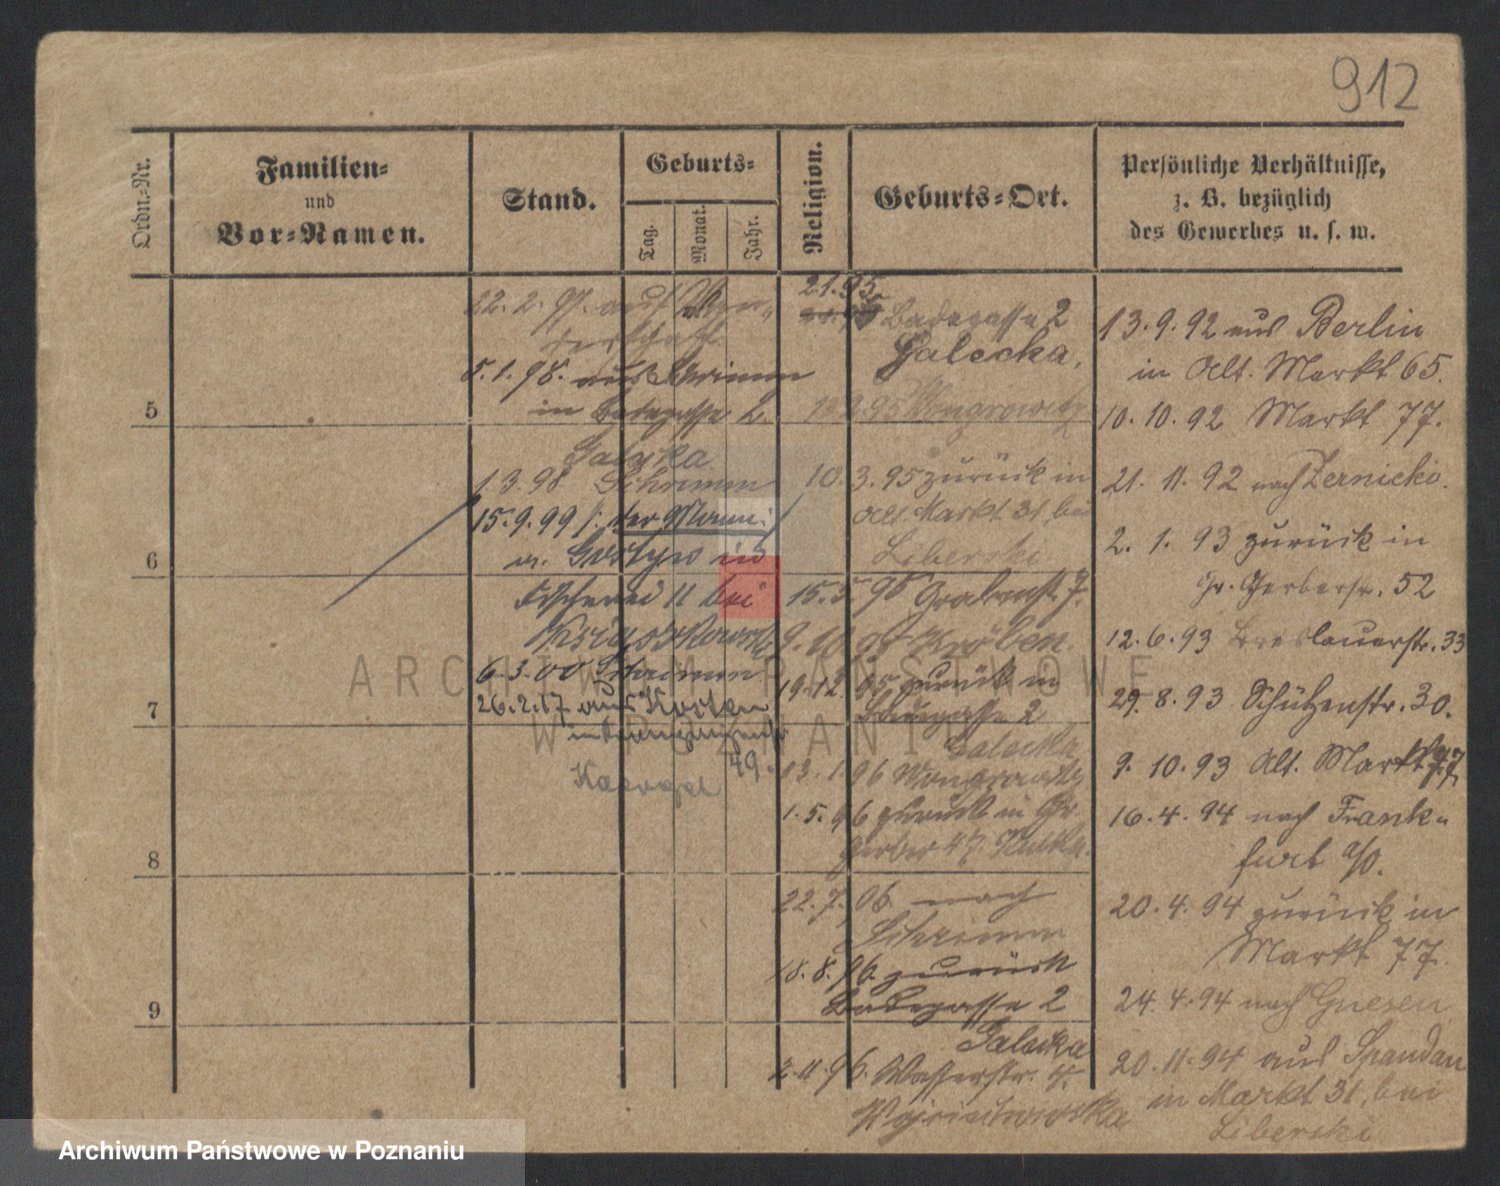 912
Ordn.=Nr.
Familien=
und
Vor=Namen.
Stand.
Geburts=
Tag.
Monat.
Jahr.
Religion.
Geburts=Ort.
Persönliche Verhältnisse,
z. B. bezüglich
des Gewerbes u. s. w.
5
6
7
8
9
22. 2. 97. auf
5. 1. 98. aus Schrimm
in Badegasse 2.
Galecka
1. 3. 98 Schrimm
15. 9. 99 /: der Mann :/
a. Gostyn in
Fischerei 11 bei
6. 3. 00 Schrimm
26. 2. 17 aus Kosten
in
49.
2.1.95
Badegasse 2
Galecka.
12.2.95 Wongrowitz
10. 3. 95 zurück in
Alt. Markt. 31, bei
Liberski
15. 5. 95 Grabenstr. 7.
9. 10. 95 Kröben.
19. 12. 95 zurück in
Badegasse 2
Galecka
13. 1. 96 Wongrowitz
1. 5. 96 zurück in Gr.
Gerber 47
22. 7. 96. nach
Schrimm
18. 8. 96. zurück
Badegasse 2
Galecka
2. 11. 96. Wasserstr. 4.
Wojciechowska
13. 9. 92 aus Berlin
in Alt. Markt 65.
10. 10. 92 Markt 77.
21. 11. 92 nach Zernicki.
2. 1. 93 zurück in
Gr. Gerberstr. 52
12. 6. 93 Breslauerstr. 33
29. 8. 93 Schützenstr. 30.
9. 10. 93 Alt. Markt 77
16. 4. 94 nach Frank=
furt a/O.
20. 4. 94 zurück in
Markt 77.
24. 4. 94 nach Gnesen
20. 11. 94 aus Spandau
in Markt 31, bei
Liberski
ARCHIWUM PAŃSTWOWE
W POZNANIU
Archiwum Państwowe w Poznaniu